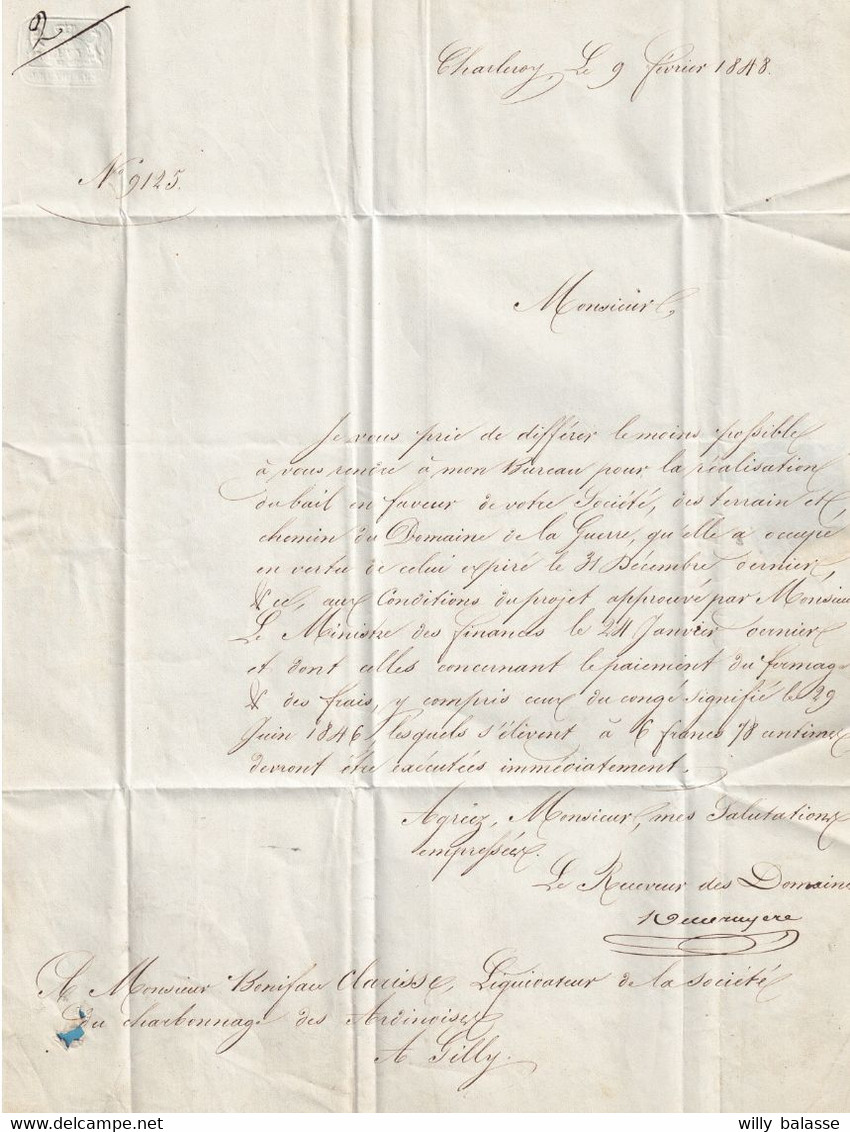 2
Charleroy, Le 9 février 1848.
N° 9125.
Monsieur,
Je vous prie de différer le moins possible
à vous rendre à mon Bureau pour la réalisation
du bail en faveur de votre Société, des terrain et
chemin du Domaine de la Guerre, qu'elle a occupé
en vertu de celui expiré le 31 Décembre dernier,
& ce, aux Conditions du projet approuvé par Monsieur
Le Ministre des finances le 24 Janvier dernier
et dont celles concernant le paiement du fermage
& des frais, y compris ceux du congé signifié le 29
Juin 1846, lesquels s'élèvent à 6 francs 78 centimes
devront être exécutées immédiatement.
Agréez, Monsieur, mes Salutations
empressées.
Le Receveur des Domaines
A Monsieur Boniface Clarisse, Liquidateur de la société
du charbonnage des Ardinoises
A Gilly.
willy balasse